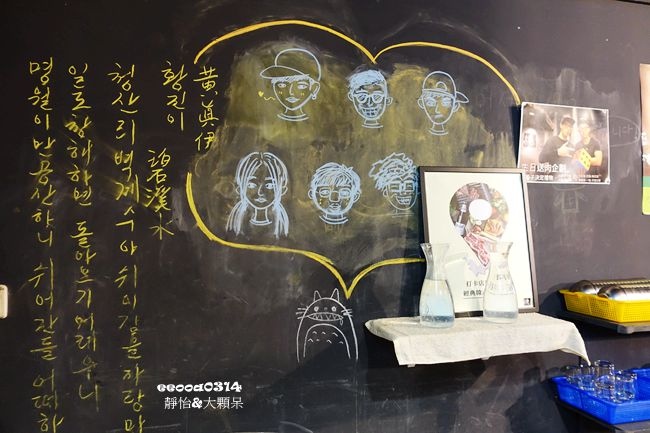 黃眞伊
황진이
碧溪水
청산리 벽계수야 쉬이감을 자랑마
일도창해하면 돌아오기 어려우니
명월이 만공산하니 쉬어간들 어떠하
生日送肉企劃
打卡店
eeooa0314
靜怡&大顆呆